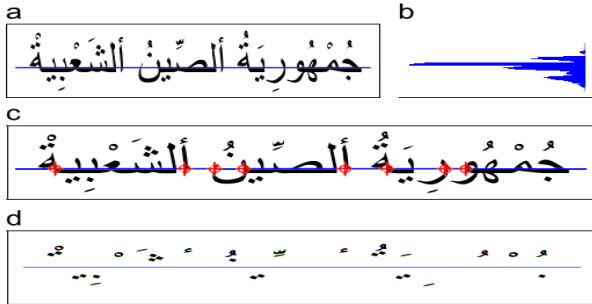 a
b
جُمْهُورِيَةُ ألصِّينُ ألشَعْبِيةْ
c
جُمْهُورِيَةُ ألصِّينُ ألشَعْبِيةْ
d